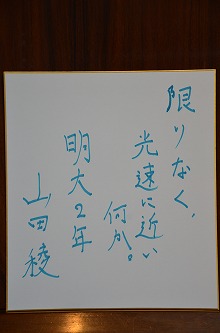 限りなく、
光速に近い
何か。
明大2年
山田稜